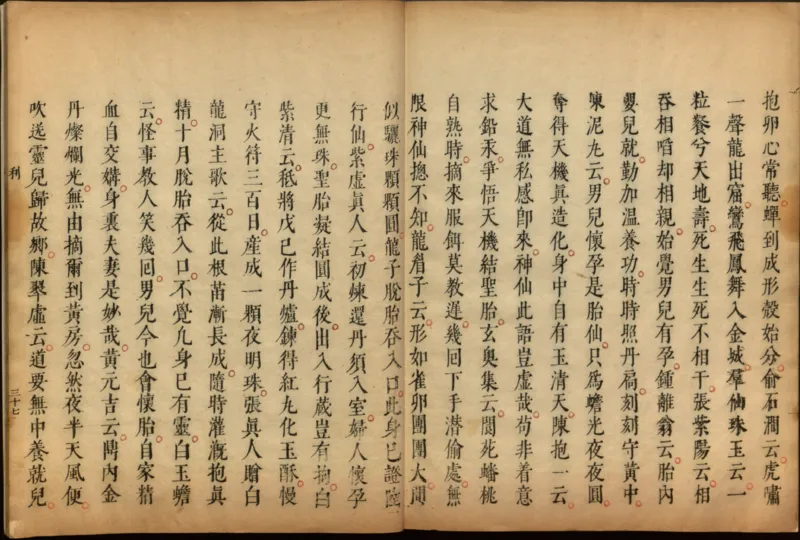 抱卵心常聽蟬到成形殼始分俞石澗云虎嘯
一聲龍出窟鸞飛鳳舞入金城羣仙珠玉云一
粒餐兮天地壽死生生死不相干張紫陽云相
吞相啗却相親始覺男兒有孕鍾離翁云胎內
嬰兒就勤加溫養功時時照丹扃刻刻守黃中
陳泥丸云男兒懷孕是胎仙只爲蟾光夜夜圓
奪得天機眞造化身中自有玉清天陳抱一云
大道無私感卽來神仙此語豈虛哉苟非着意
求鉛汞爭悟天機結聖胎玄奥集云閬苑蟠桃
自熟時摘來服餌莫教遲幾回下手潛偷處無
限神仙揔不知龍眉子云形如雀卵團團大間
似驪珠顆顆圓龍子脫胎吞入口此身已證陸
行仙紫虛眞人云初煉還丹須入室婦人懷孕
更無珠聖胎凝結圓成後出入行藏豈有拘白
紫清云秪將戊巳作丹爐鍊得紅丸化玉酥慢
守火符三百日産成一顆夜明珠張眞人贈白
龍洞主歌云從此根苗漸長成隨時灌漑抱眞
精十月脫胎吞入口不覺凢身巳有靈白玉蟾
云怪事教人笑幾回男兒今也會懷胎自家精
血自交媾身裏夫妻是妙哉黃元吉云鬬內金
丹燦爛光無由摘爾到黃房忽然夜半天風便
吹送靈兒歸故鄉陳翠虛云道要無中養就兒
利
三十七